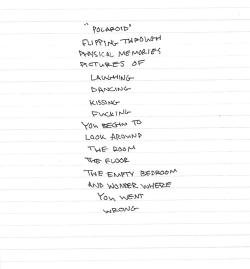 "POLAROID"
FLIPPING THROUGH
PHYSICAL MEMORIES
PICTURES OF
LAUGHING
DANCING
KISSING
FUCKING
YOU BEGIN TO
LOOK AROUND
THE ROOM
THE FLOOR
THE EMPTY BEDROOM
AND WONDER WHERE
YOU WENT
WRONG